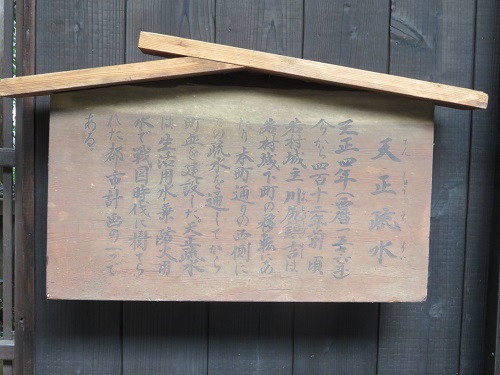 天正疏水
てんしょうそすい
天正四年(西暦一五七六年)
今から四百十余年前 頃
岩村城主川尻鎮吉は
岩村城下町の移転にあ
たり本町通りの西側に
この疏水を通してから
町並を建設した天正疏水
は生活用水兼防火用
水で戦国時代に樹てら
れた都市計画の一つで
ある。